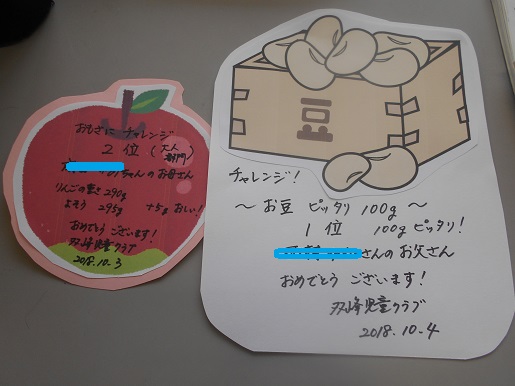 おもさに チャレンジ
2 位 (大人部門)
ちゃんのお母さん
りんごの重さ 290g
よそう 295g +5g おしい!
おめでとう ございます!
双峰児童クラブ
2018.10.3
豆
チャレンジ!
～ お豆 ピッタリ 100g ～
1 位 100g ピッタリ!
さんのお父さん
おめでとう ございます!
双峰児童クラブ
2018.10.4